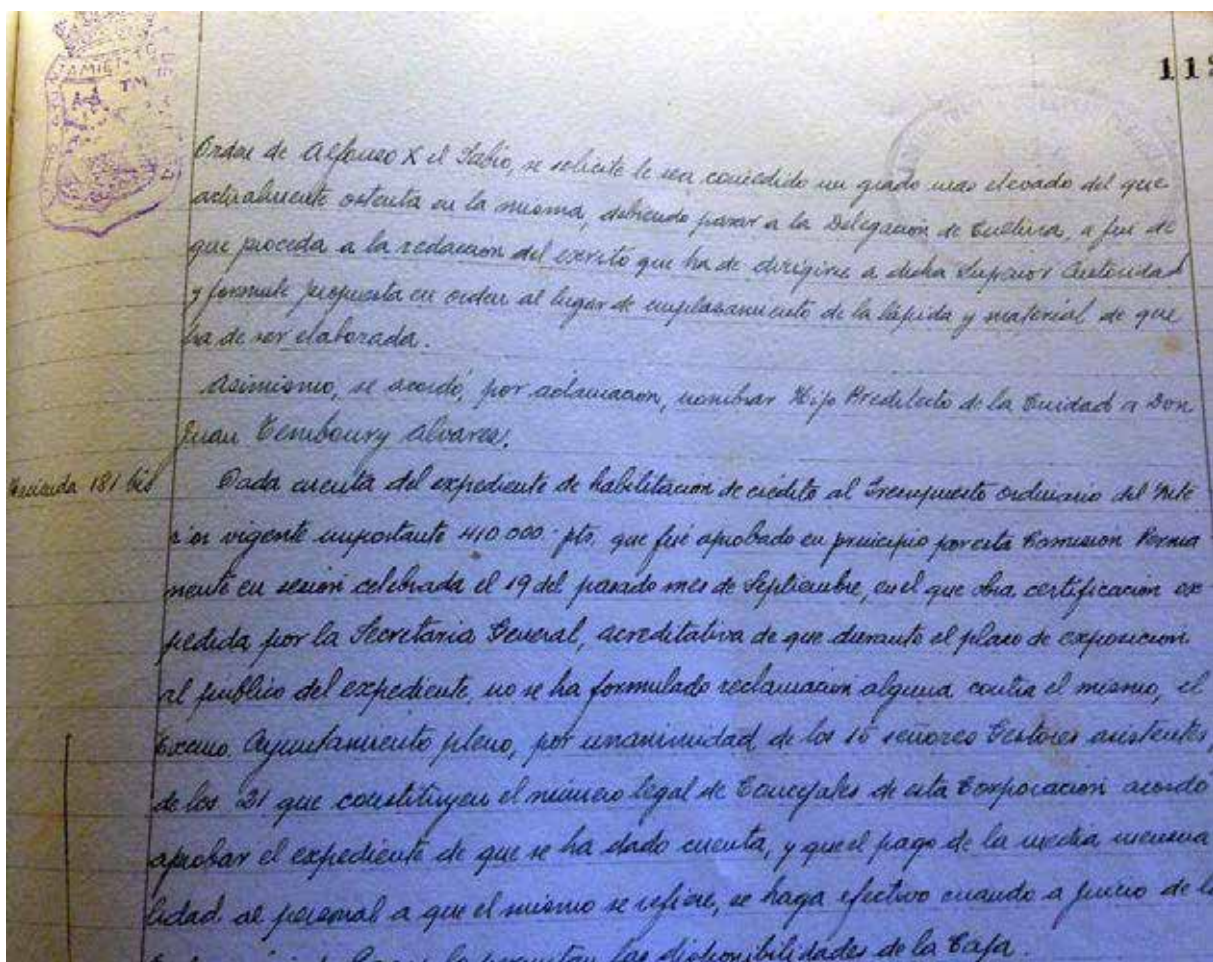 AMIENTO DE
118
Orden de Alfonso X el Sabio, se solicite le sea concedido un grado mas elevado del que
actualmente ostenta en la misma, debiendo pasar a la Delegación de Cultura, a fin de
que proceda a la redaccion del escrito que ha de dirigirse a dicha Superior Autoridad
y formule propuesta en orden al lugar de emplazamiento de la lápida y material de que
ha de ser elaborada.
Asimismo, se acordó, por aclamación, nombrar Hijo Predilecto de la Ciudad a Don
Juan Temboury Alvares.
Hacienda 181 bis
Dada cuenta del expediente de habilitacion de crédito al Presupuesto ordinario del Inte
rior vigente importante 410.000.- pts. que fué aprobado en principio por esta Comisión Perma
nente en sesión celebrada el 19 del pasado mes de Septiembre, en el que obra certificacion ex-
pedida por la Secretaria General, acreditativa de que durante el plazo de exposicion
al publico del expediente, no se ha formulado reclamación alguna contra el mismo, el
Excmo. Ayuntamiento pleno, por unanimidad de los 15 señores Gestores asistentes,
de los 21 que constituyen el número legal de Concejales de esta Corporación acordó
aprobar el expediente de que se ha dado cuenta, y que el pago de la media mensua
lidad al personal a que el mismo se refiere, se haga efectivo cuando a juicio de la
las disponibilidades de la Caja.